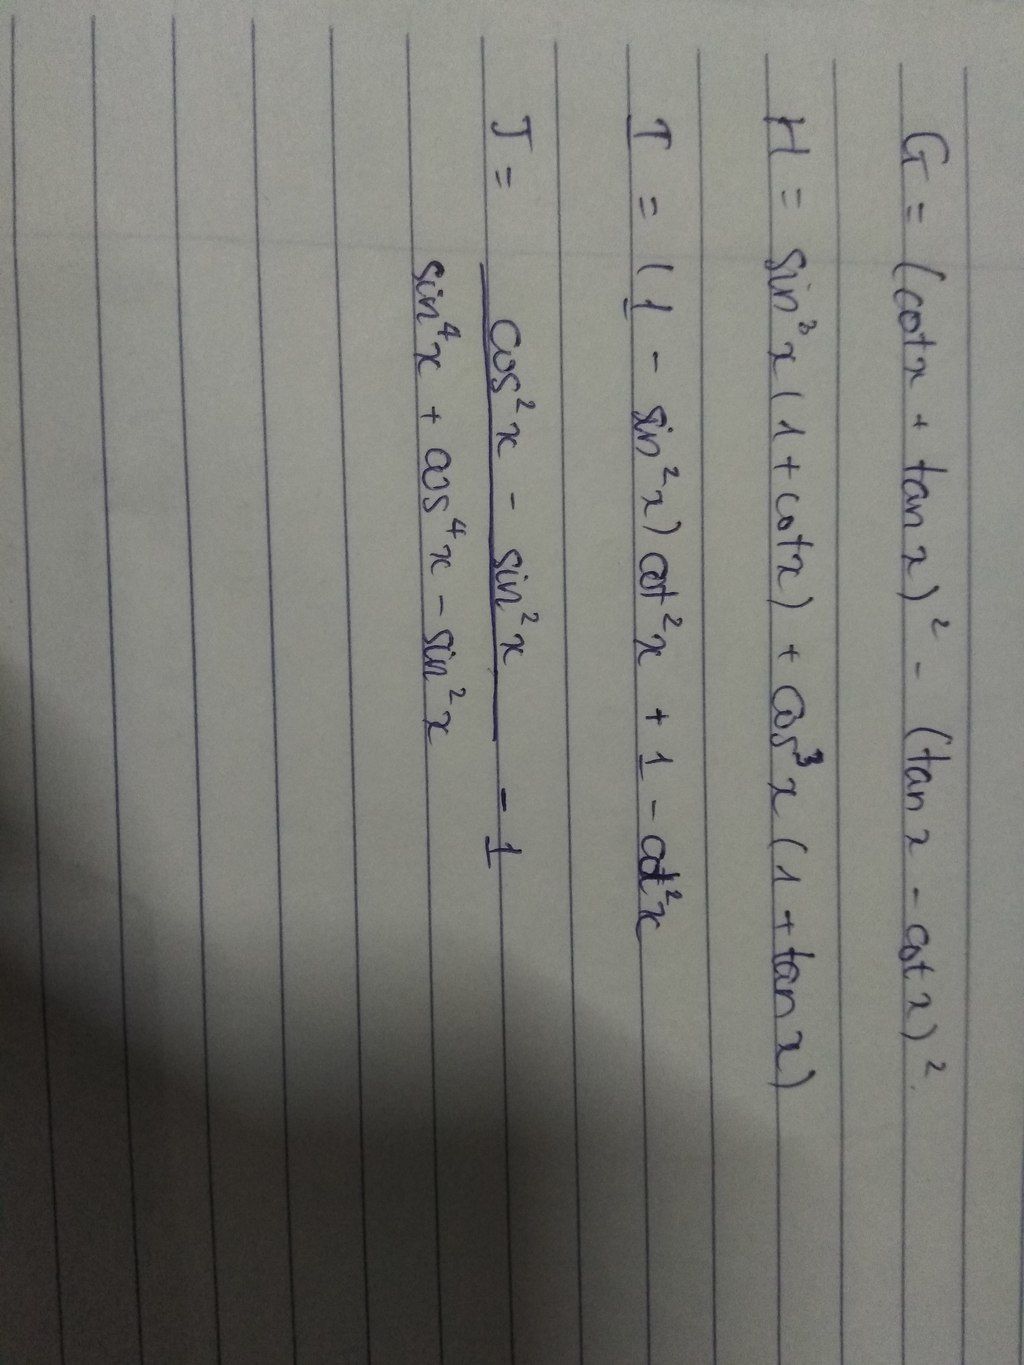 G = (cotx + tanx)² - (tanx - cotx)².
H = sin³x(1+cotx) + cos³x(1+tanx)
I = (1 - sin²x)cot²x + 1 - cot²x
J = cos²x - sin²x / sin⁴x + cos⁴x - sin²x - 1